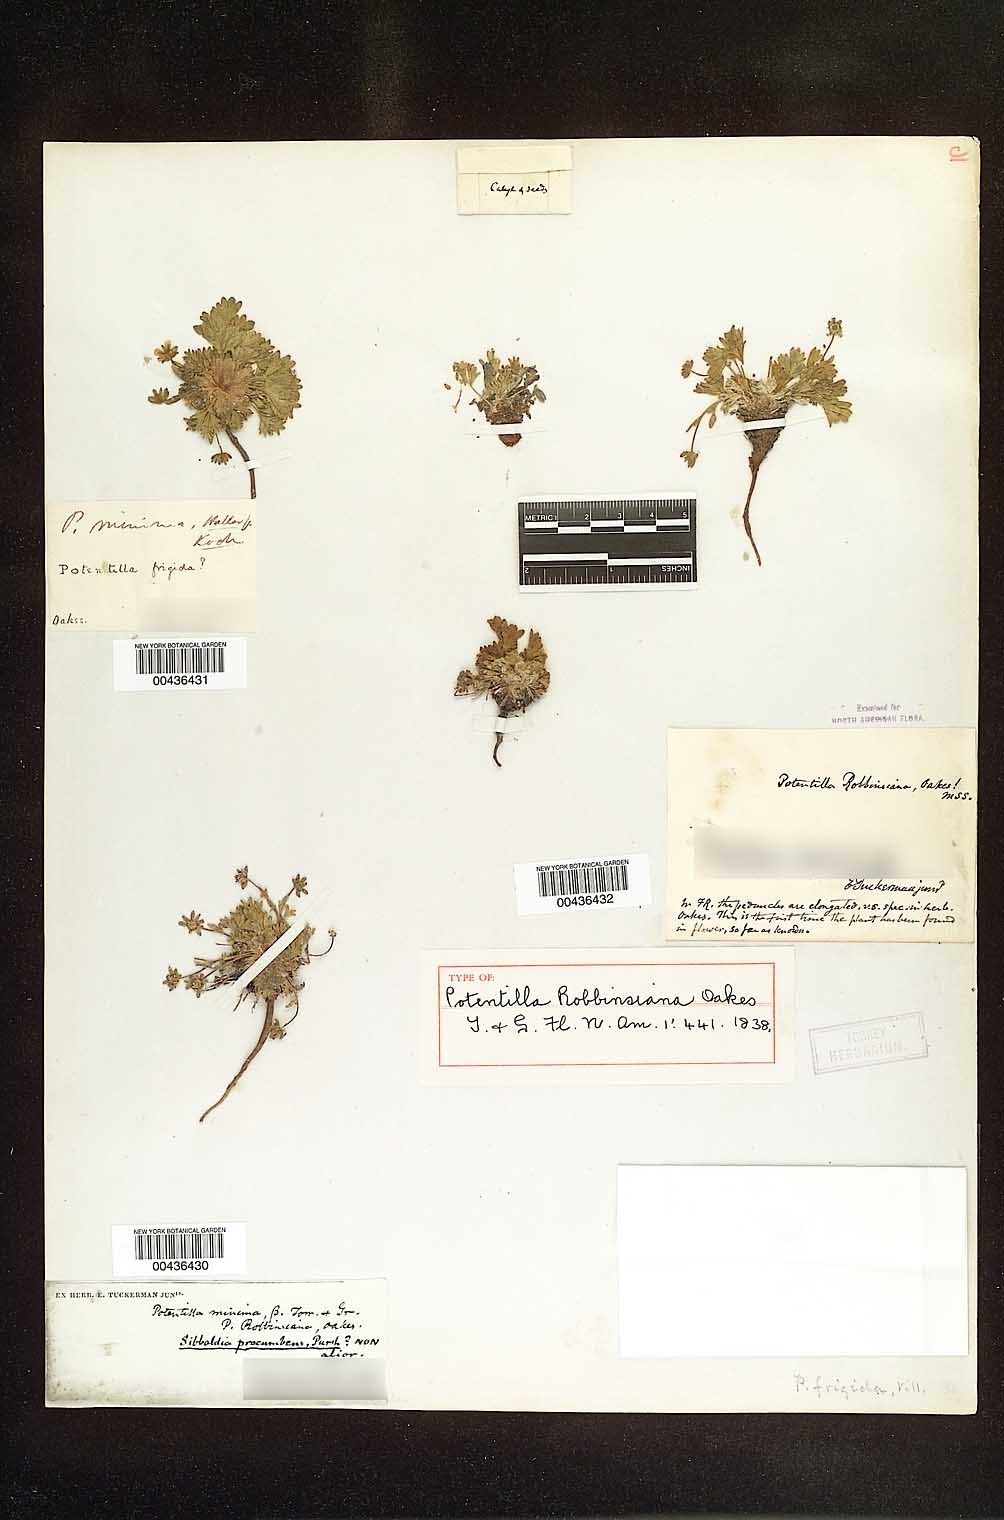 C
Calyx & seeds
P. minima, Haller f.
Koch
Potentilla frigida?
Oakes.
NEW YORK BOTANICAL GARDEN
00436431
METRIC 1 2 3 4 5
2 1 INCHES
Examined for
NORTH AMERICAN FLORA
Potentilla Robbinsiana, Oakes!
mss.
E Tuckerman junr
In FR. the peduncles are elongated, v.s. spec. in herb.
Oakes. This is the first time the plant has been found
in flower, so far as known.
NEW YORK BOTANICAL GARDEN
00436432
TYPE OF:
Potentilla Robbinsiana Oakes
T. & G. Fl. N. Am. 1: 441. 1838.
TORREY
HERBARIUM.
NEW YORK BOTANICAL GARDEN
00436430
EX HERB. E. TUCKERMAN JUNr.
Potentilla minima, β. Torr. & Gr.
P. Robbinsiana, Oakes.
Sibbaldia procumbens, Pursh? NON
alior.
P. frigida, Vill.